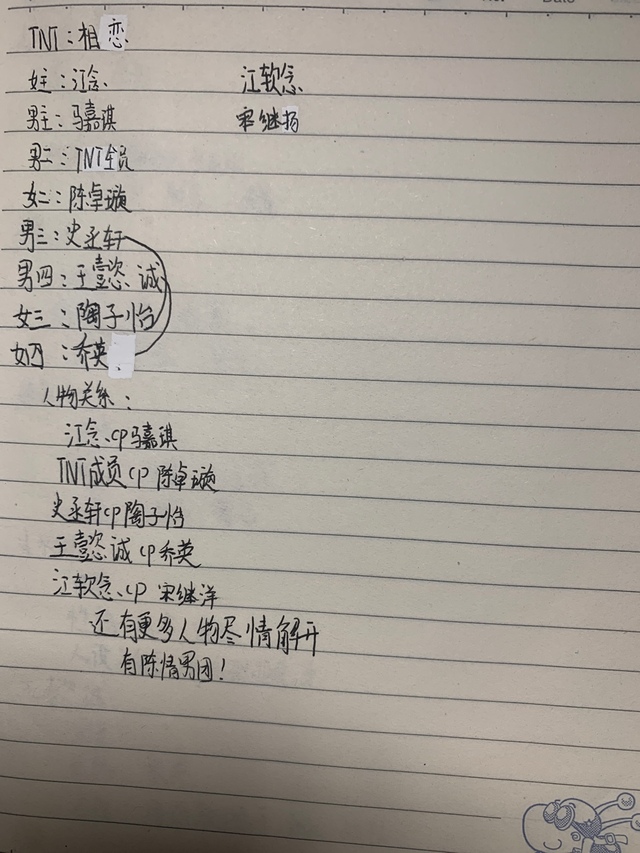 Date
TNT：相恋
女主：江念 江软念
男主：马嘉琪 宋继扬
男二：TNT全员
女二：陈卓璇
男三：史丞轩
男四：王壹恣诚
女三：陶子怡
女四：乔英
人物关系：
江念cp马嘉琪
TNT成员cp陈卓璇
史丞轩cp陶子怡
王壹恣诚cp乔英
江软念cp宋继洋
还有更多人物尽情解开
有陈情男团！